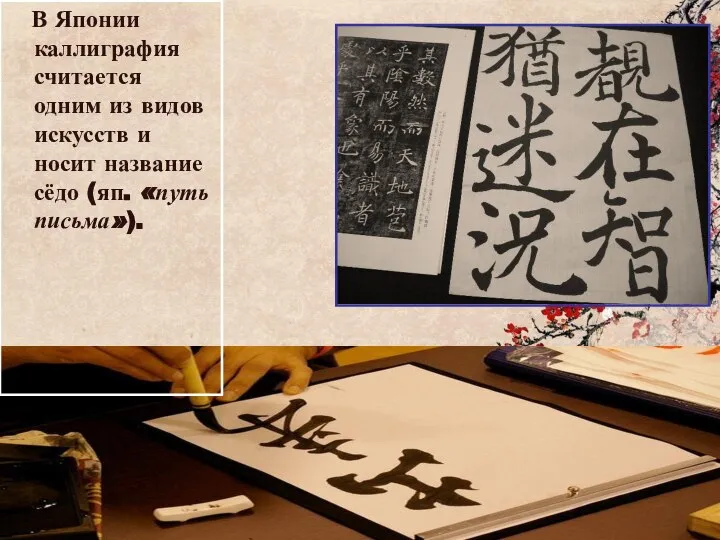 В Японии
каллиграфия
считается
одним из видов
искусств и
носит название
сёдо (яп. «путь
письма»).
其數然而天地苞
乎陰陽而易識者
以其有象也
覩在智
猶迷況